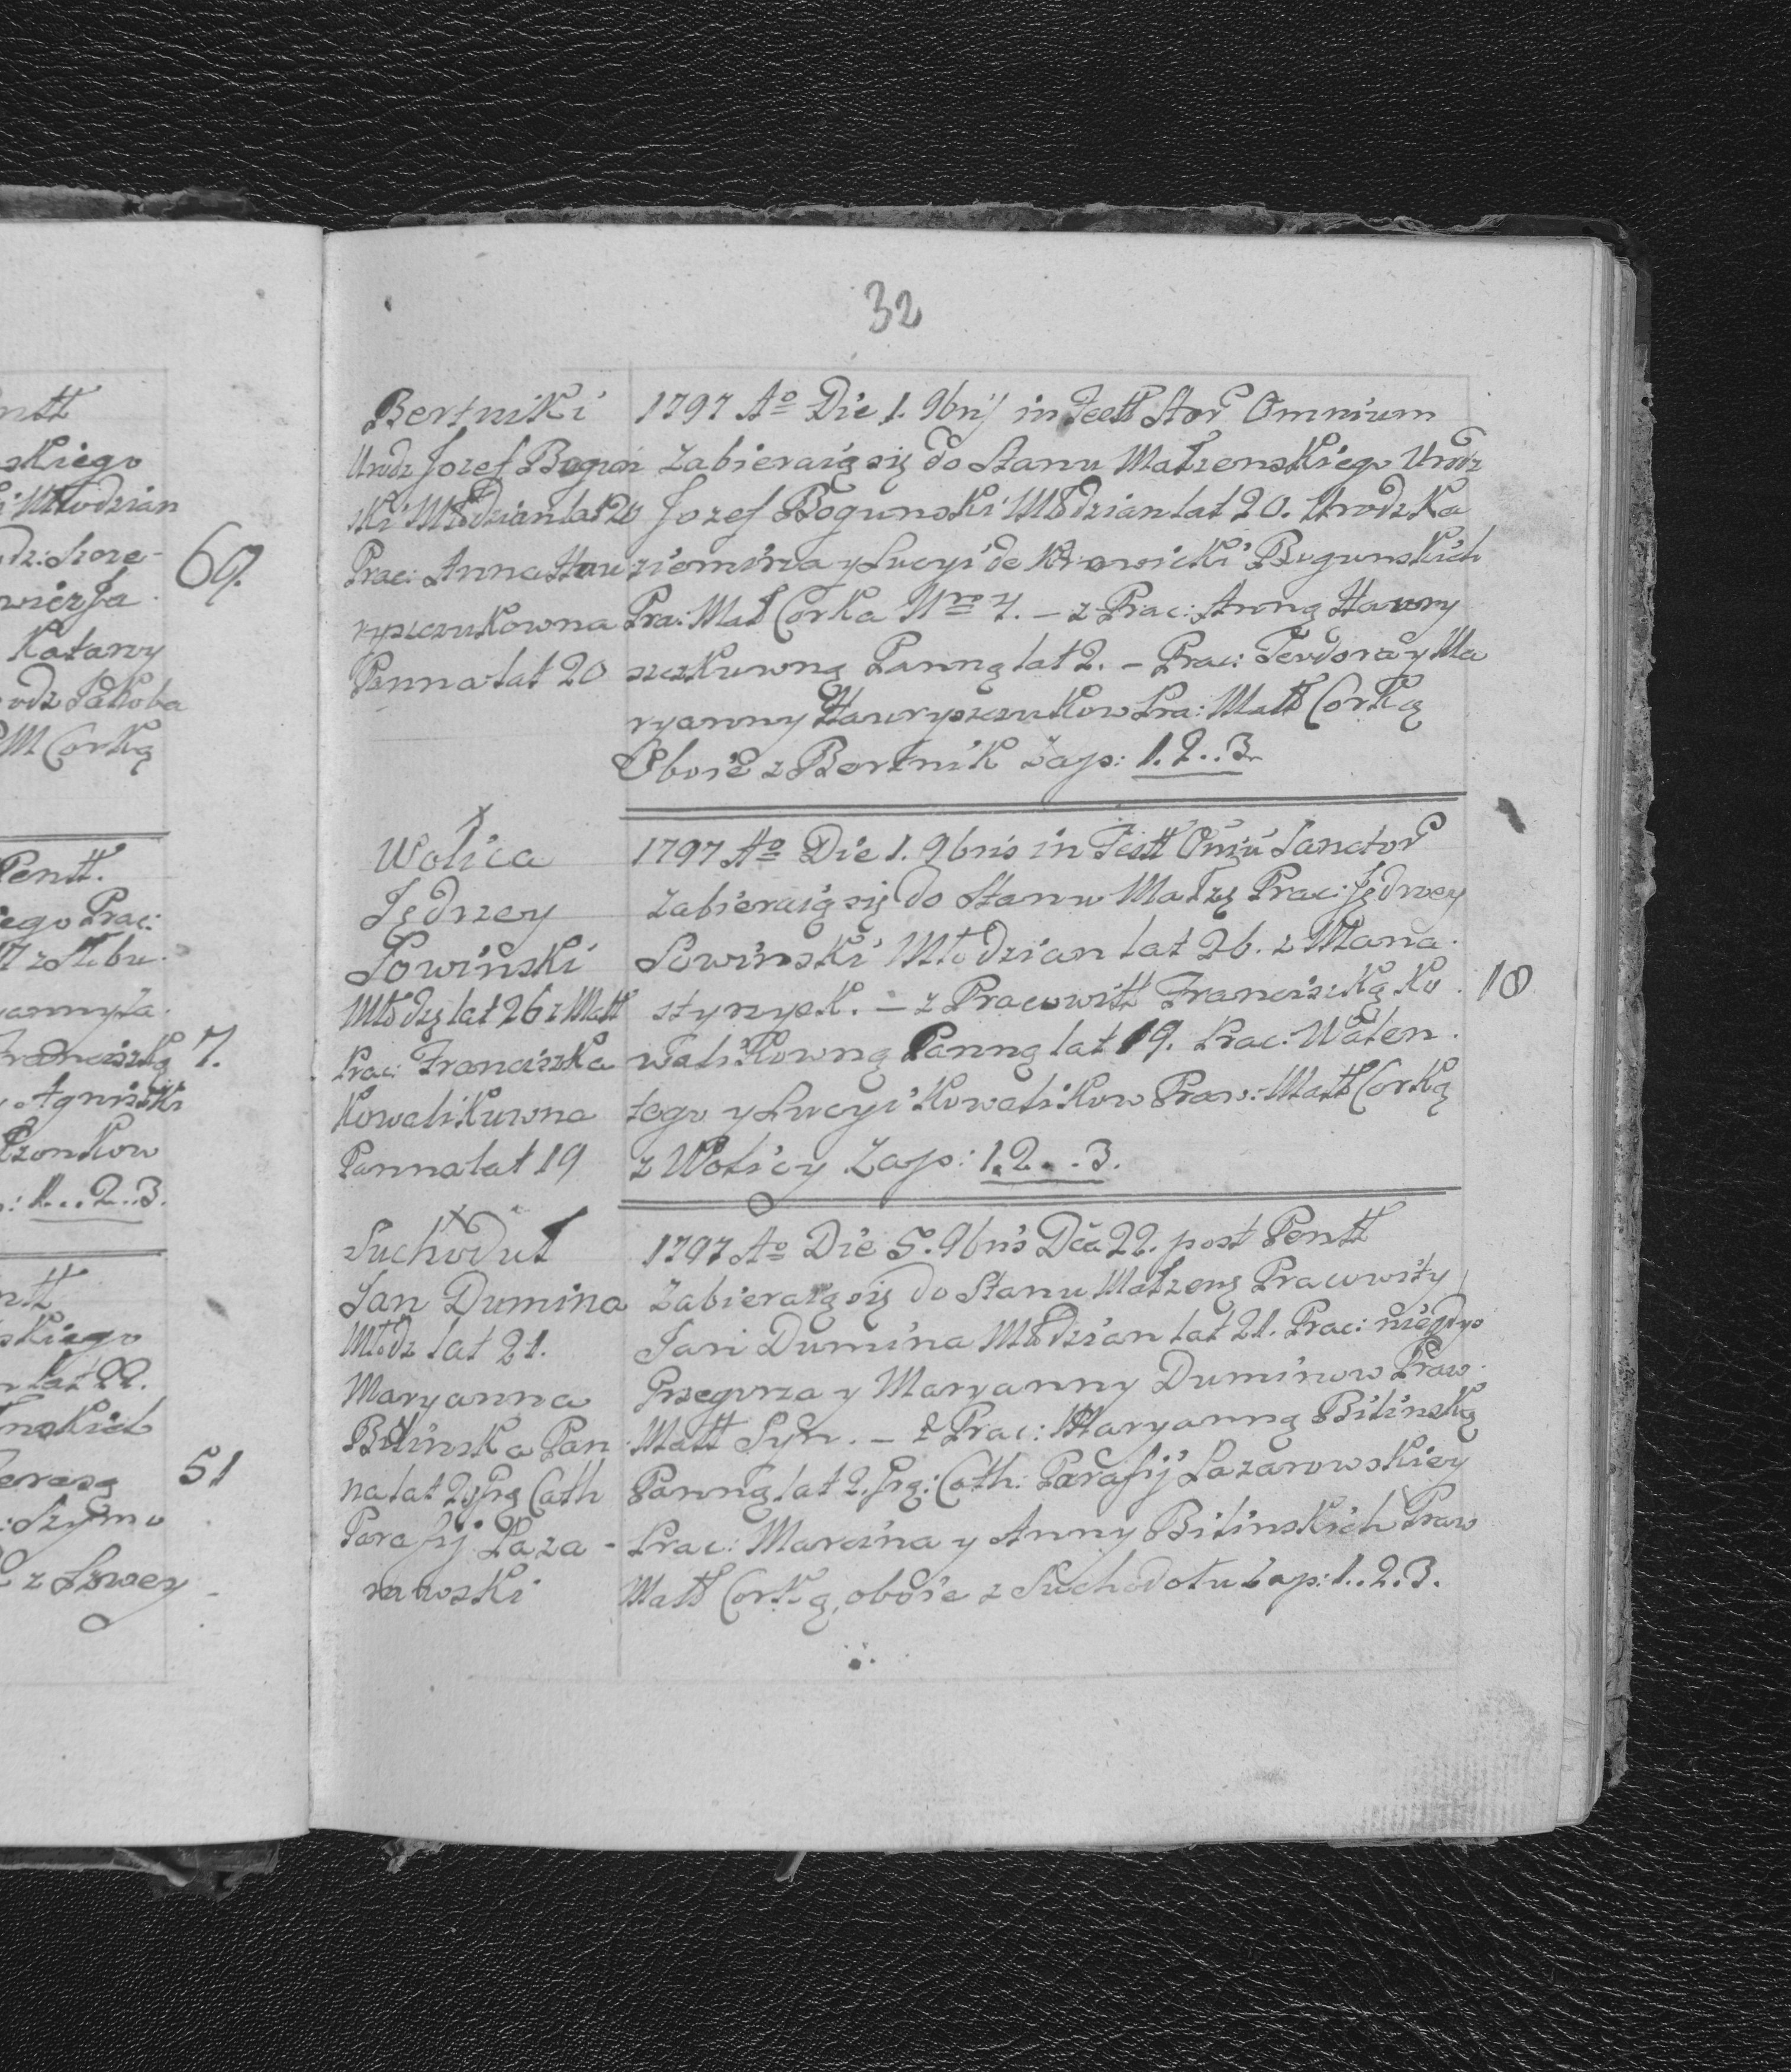 32
Bertniki
Urodz Jozef Bogun
ski Młodzian lat 20
Prac: Anna Hau
ryszczukowna
Panna lat 20
1797 Ao Die 1. 9bris in Festt Stor Omnium
Zabieraią się do Stanu Małzenskiego Urodz
Jozef Bogunski Młodzian lat 20. Urodz Ka
ziemirza y Lucyi de Bogunskich
Pra: Matt Corka Nro 4. – z Prac: Anną Hawry
szczkuwną Panną lat 2. – Prac: Teodora y Ma
ryanny Hawryszczukow Pra: Matt Corką
Oboie z Bertnik Zap: 1. 2..3.
Wolica
Jędrzey
Sowinski
Młodz lat 26 z Matt
Prac: Franciszka
Kowalikuwna
Panna lat 19
1797 Ao Die 1. 9bris in Festt Omiu Sanctor
Zabieraią się do Stanu Małzę Prac: Jędrzey
Sowinski Młodzian lat 26. z Mana
styrzysk. – z Pracowitt Franciszką Ko
walikowną Panną lat 19. Prac: Walen
tego y Lucyi Kowalikow Praw: Matt Corką
z Wolicy Zap: 1. 2...3.
10
Suchoduł
Jan Dumina
Młodz lat 21.
Maryanna
Bilinska Pan
na lat 20 Prg Cath
Parafij Laza-
rowski
1797 Ao Die 5. 9bris Dca 22. post Pentt
Zabieraią się do Stanu Małzens Pracowity
Jan Dumina Młodzian lat 21. Prac: niegdys
Grzegorza y Maryanny Duminow Praw
Matt Syn. – z Prac: Maryanną Bilinską
Panną lat 2. Prg: Cath: Parafij Lazarowskiey
Prac: Marcina y Anny Bilinskich Praw
Matt Corką, oboie z Suchodołu Zap: 1..2.3.
69.
7.
51
skiego
Młodzian
Katarzy
M Corką
Pentt.
iego Prac:
Franciszką
Agniszki
: 1...2..3.
skiego
lat 22.
nskich
Teresą
: Szymo